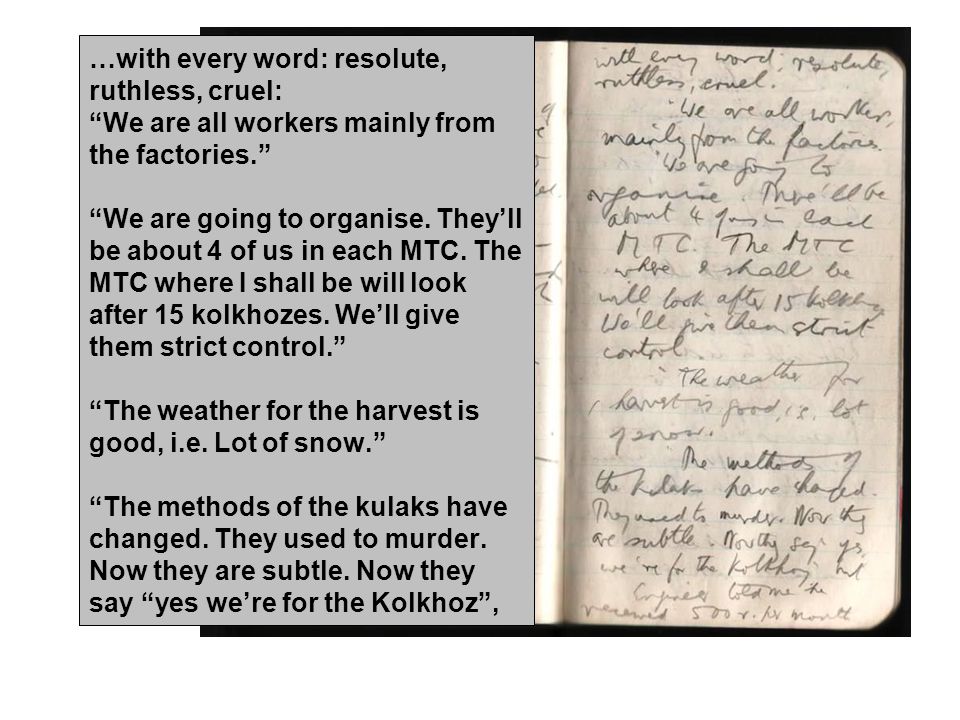 …with every word: resolute,
ruthless, cruel:
“We are all workers mainly from
the factories.”
“We are going to organise. They’ll
be about 4 of us in each MTC. The
MTC where I shall be will look
after 15 kolkhozes. We’ll give
them strict control.”
“The weather for the harvest is
good, i.e. Lot of snow.”
“The methods of the kulaks have
changed. They used to murder.
Now they are subtle. Now they
say “yes we’re for the Kolkhoz”,
with every word: resolute,
ruthless, cruel.
"We are all workers,
mainly from the factories.
"We are going to
organise. There'll be
about 4 of us in each
MTC. The MTC
where I shall be
will look after 15
We'll give them strict
control.
"The weather for
harvest is good, i.e. lot
of snow.
"The methods of
the kulaks have changed.
They used to murder. Now they
are subtle. Now they say: yes,
we're for the Kolkhoz, but
Engineer told me he
received 500 r. per month